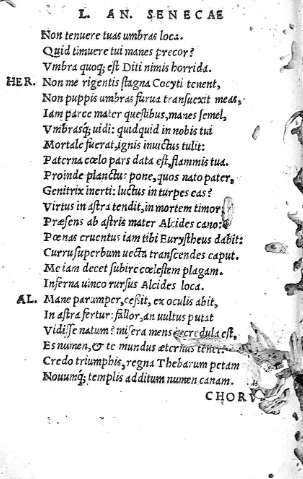 L. AN. SENECAE
Non tenuere tuas umbras loca.
Quid timuere tui manes precor?
Vmbra quoq; est Diti nimis horrida.
HER. Non me rigentis stagna Cocyti tenent,
Non puppis umbras furua transuexit meas,
Iam parce mater questibus, manes semel,
Vmbrasq; uidi: quidquid in nobis tui
Mortale fuerat, ignis inuictus tulit:
Paterna coelo pars data est, flammis tua.
Proinde planctus pone, quos nato pater,
Genitrix inerti: luctus in turpes eat?
Virtus in astra tendit, in mortem timor:
Præsens ab astris mater Alcides cano:
Poenas cruentus iam tibi Eurystheus dabit:
Curru superbum uecta transcendes caput.
Me iam decet subire coelestem plagam.
Inferna uinco rursus Alcides loca.
AL. Mane parumper, cessit, ex oculis abit,
In astra fertur: fallor, an uultus putat
Vidisse natum? misera mens incredula est,
Es numen, & te mundus æternus tenet:
Credo triumphis, regna Thebarum petam
Nouumq; templis additum numen canam.
CHORV